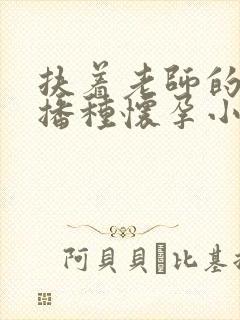 扶着老師的
播種懷孕小
阿貝貝 比基